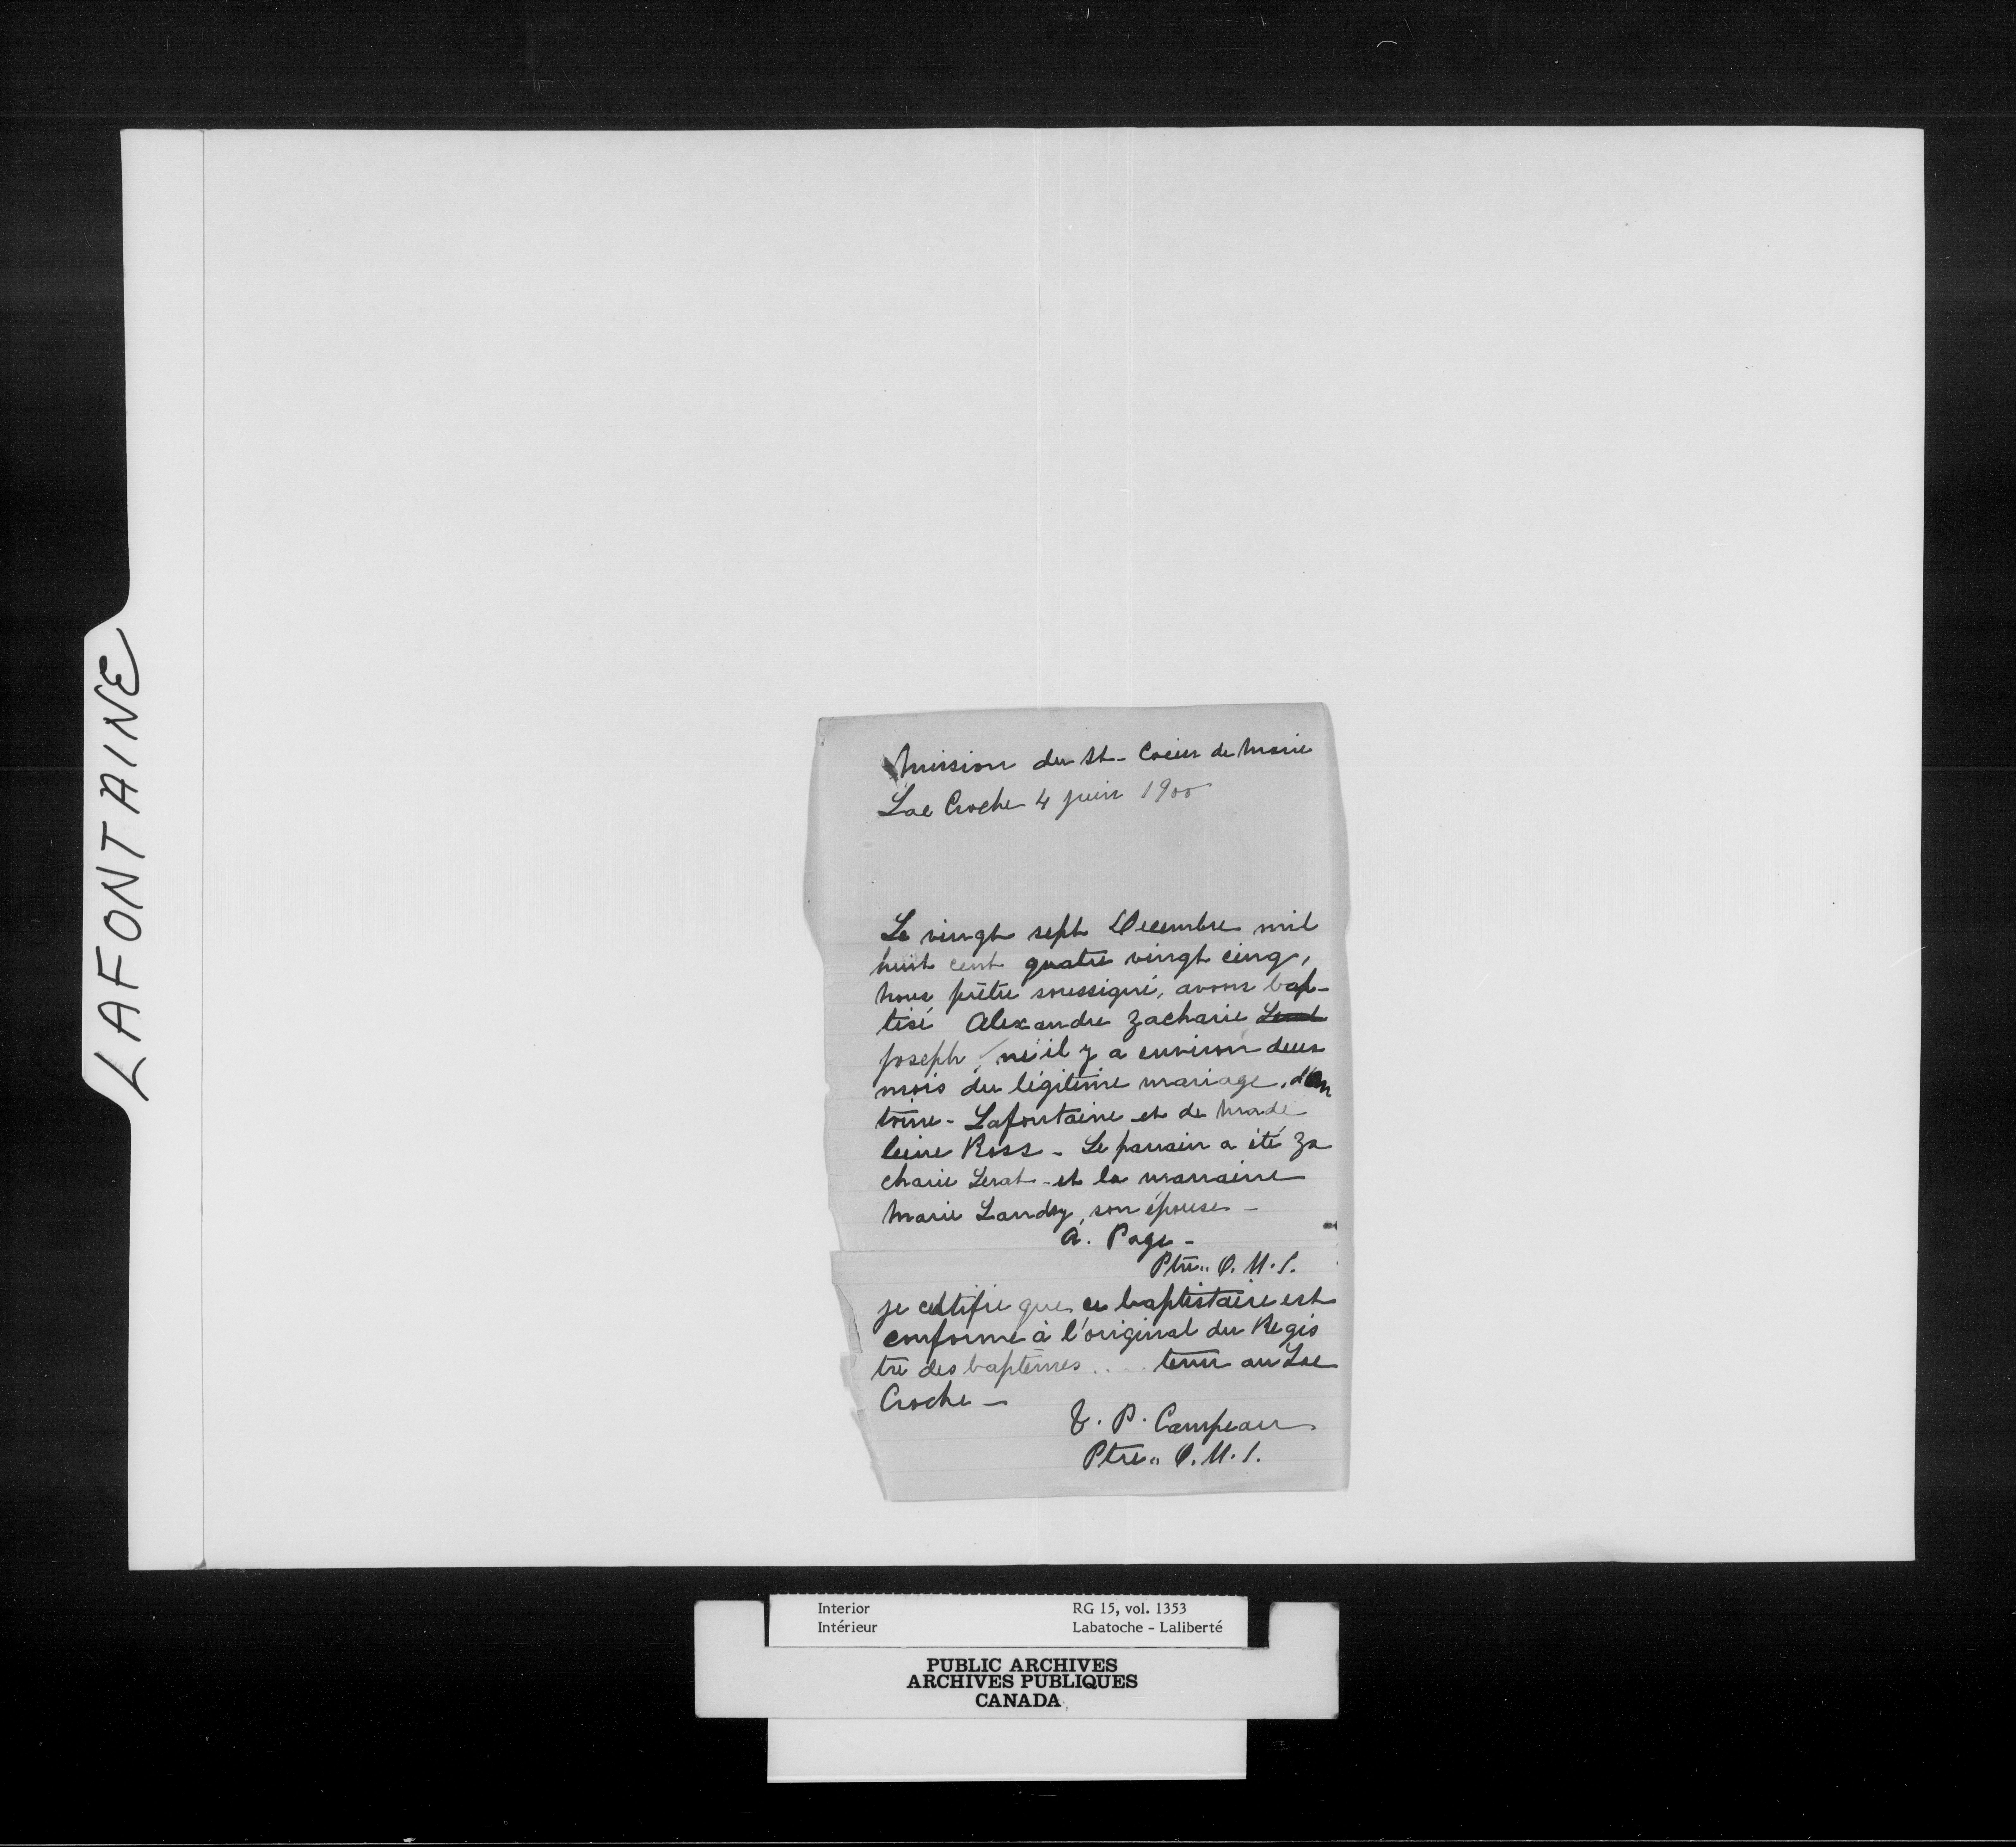 LAFONTAINE
Mission du St-Coeur de Marie
Lac Croche 4 juin 1900
Le vingt sept Decembre mil
huit cent quatre vingt cinq,
nous prêtre soussigné, avons bap-
tisé Alexandre Zacharie Lerat
Joseph, né il y a environ deux
mois du légitime mariage, d'An
toine - Lafontaine et de Made
leine Ross - Le parrain a été Za
charie Lerat - et la marraine
Marie Landry, son épouse -
A. Page -
Ptre.. O.M.I.
je certifie que ce baptistaire est
conforme à l'original du Regis
tre des baptêmes .... tenu au Lac
Croche -
P. Campeau
Ptre.. O.M.I.
Interior RG 15, vol. 1353
Intérieur Labatoche - Laliberté
PUBLIC ARCHIVES
ARCHIVES PUBLIQUES
CANADA